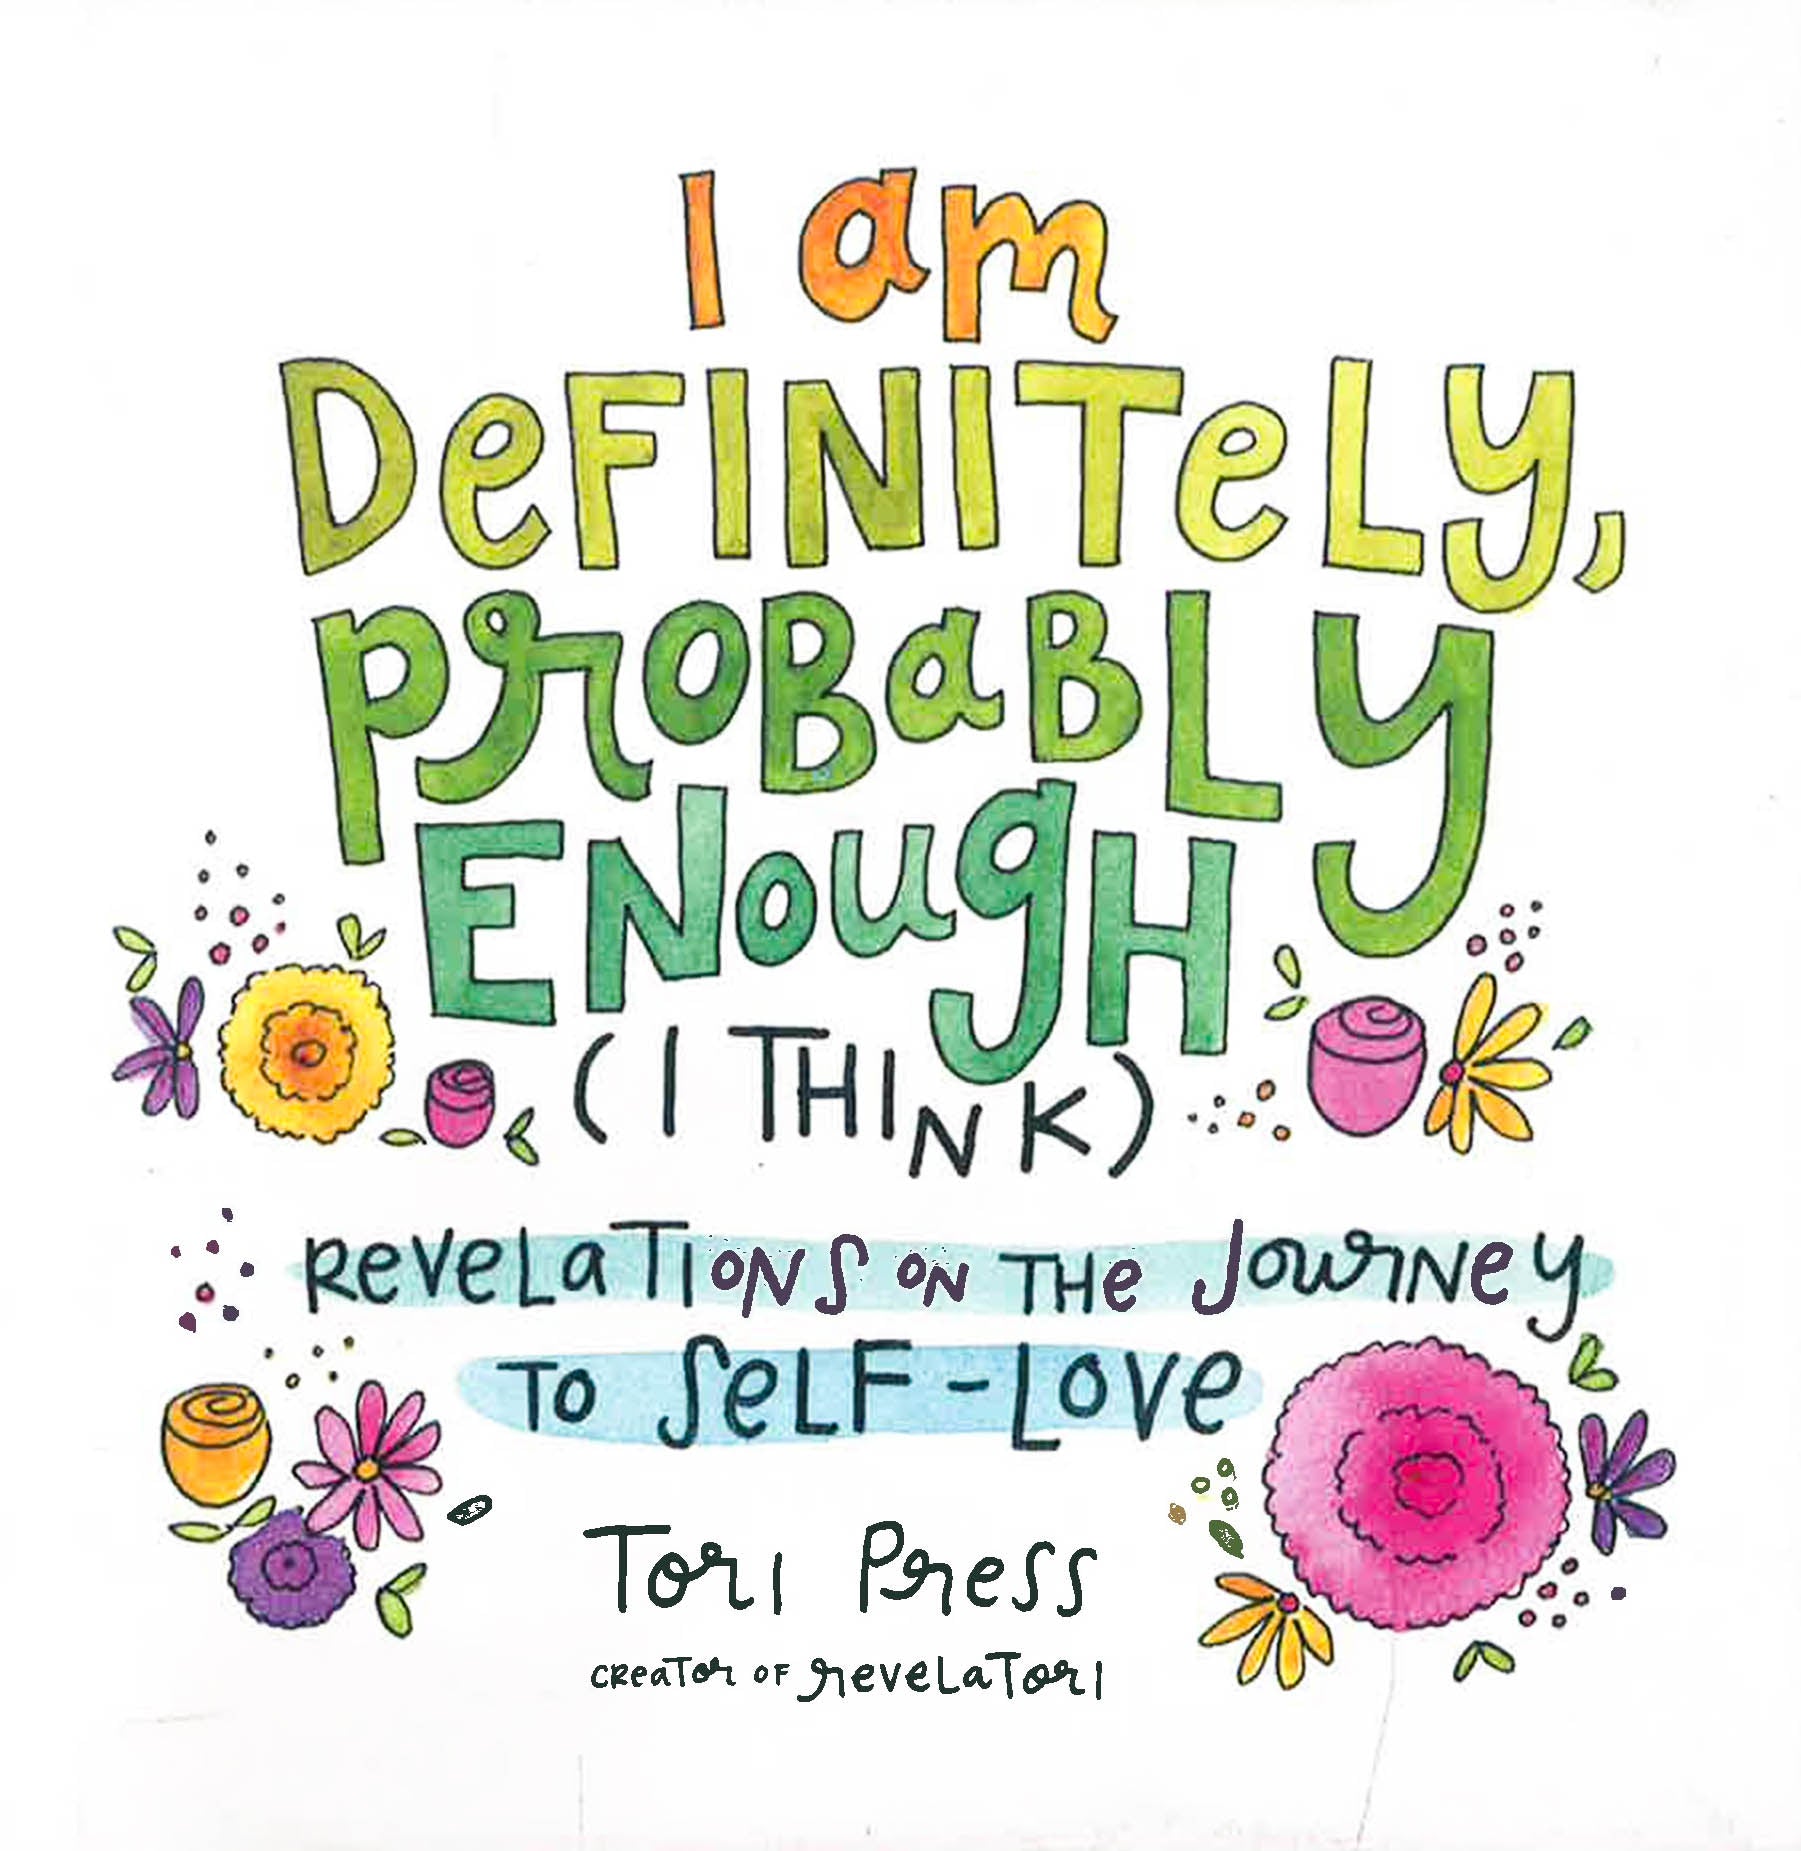 I am
DeFINITeLy,
proBaBLy
ENouGH
(I THINK)
ReveLaTIONS ON THe JourNey
TO SeLF-Love
Tori Press
creaTor of reveLaTori